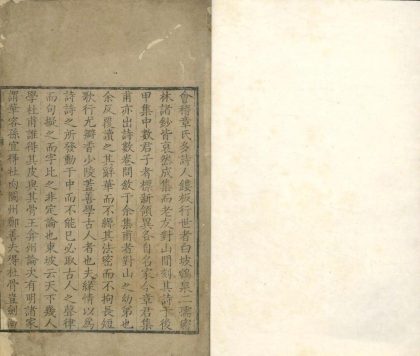 會稽章氏多詩人鏤板行世者白坡鶴泉二
林諸鈔皆裒然成集而老友對山閒刻其詩于後
甲集中數君子者標新領異各自名家今章君集
甫亦出詩數卷問敘于余集甫者對山之幼弟也
余反覆讀之其辭華而不縟其法密而不拘長短
歌行尤瓣香少陵蓋善學古人者也夫緣情以為
詩詩之所發動于中而不能已必取古人之聲律
而句擬之而字比之非定論也東坡云天下幾人
學杜甫誰得其皮與其骨王弇州論次有明諸家
謂華容孫宜得杜肉閬州鄭善夫得杜骨豈劍南